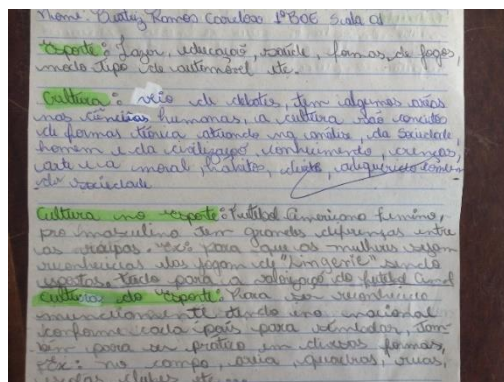 Nome: Beatriz Ramos Cardoso 1ºBOE Sala 01
Esporte: Lazer, educação, saúde, formas de jogos,
modo tipo de automóvel etc.
Cultura: veio de debates, tem algumas áreas
nas ciências humanas, a cultura são conceitos
de formas teórica atuando na análise, da sociedade
homem e da civilização, conhecimento, crenças,
arte e a moral, hábitos, direito, adquirido
da sociedade
Cultura no esporte: Futebol Americano feminino,
pro masculino tem grandes diferenças entre
as roupas. Ex: para que as mulheres sejam
reconhecidas elas jogam de "Lingerie" sendo
espostas, tudo para a valorização do futebol
Culturas do Esporte: Para ser reconhecido
mundialmente tendo no nacional
conforme cada país para
para ser prático em diversas formas,
Ex: no campo, areia, quadras, ruas,
escolas, clubes etc